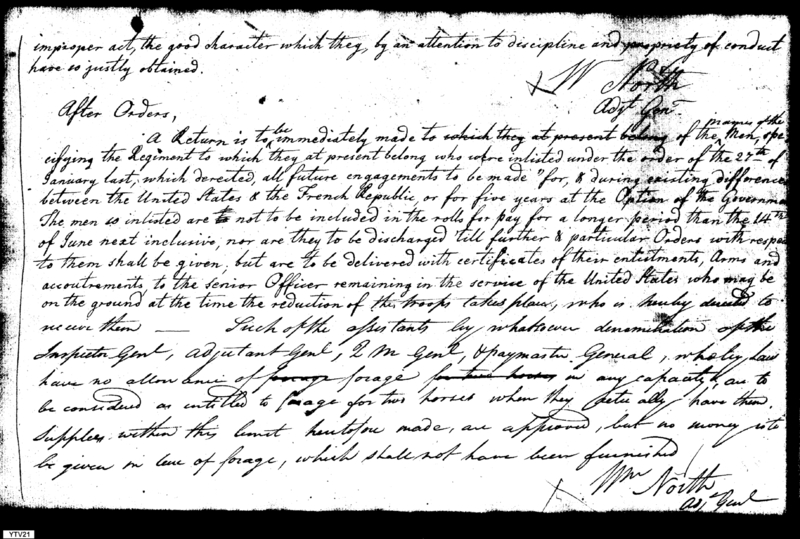 improper act, the good character which they, by an attention to discipline and propriety of conduct
have so justly obtained.
W North
Adjt Genl
After Orders,
names of the
A Return is to be immediately made to which they at present belong of the Men, spe-
cifying the Regiment to which they at present belong who were inlisted under the order of the 27th of
January last, which derected, all future engagements to be made "for, & during existing differences
between the United States & the French Republic, or for five years at the Option of the Governme
The men so inlisted are to not to be included in the rolls for pay for a longer period than the 14th
of June next inclusive, nor are they to be discharged 'till further & particular Orders with respe
to them shall be given, but are to be delivered with certificates of their enlistments, Arms and
accoutrements, to the senior Officer remaining in the service of the United States who may be
on the ground at the time the reduction of the troops takes place, who is hereby directed to
receive them — Such of the assistants by whatsoever denomination of the
Inspector Genl, Adjutant Genl, Q M Genl, & paymaster General, who by Law
have no allowance of forage forage for two horses in any capacity, are to
be considered as intitled to forage for two horses when they actually have them.
Supplies within this limit heretofore made, are approved, but no money is to
be given in lieu of forage, which shall not have been furnished
Wm North
Adjt Genl
YTV21